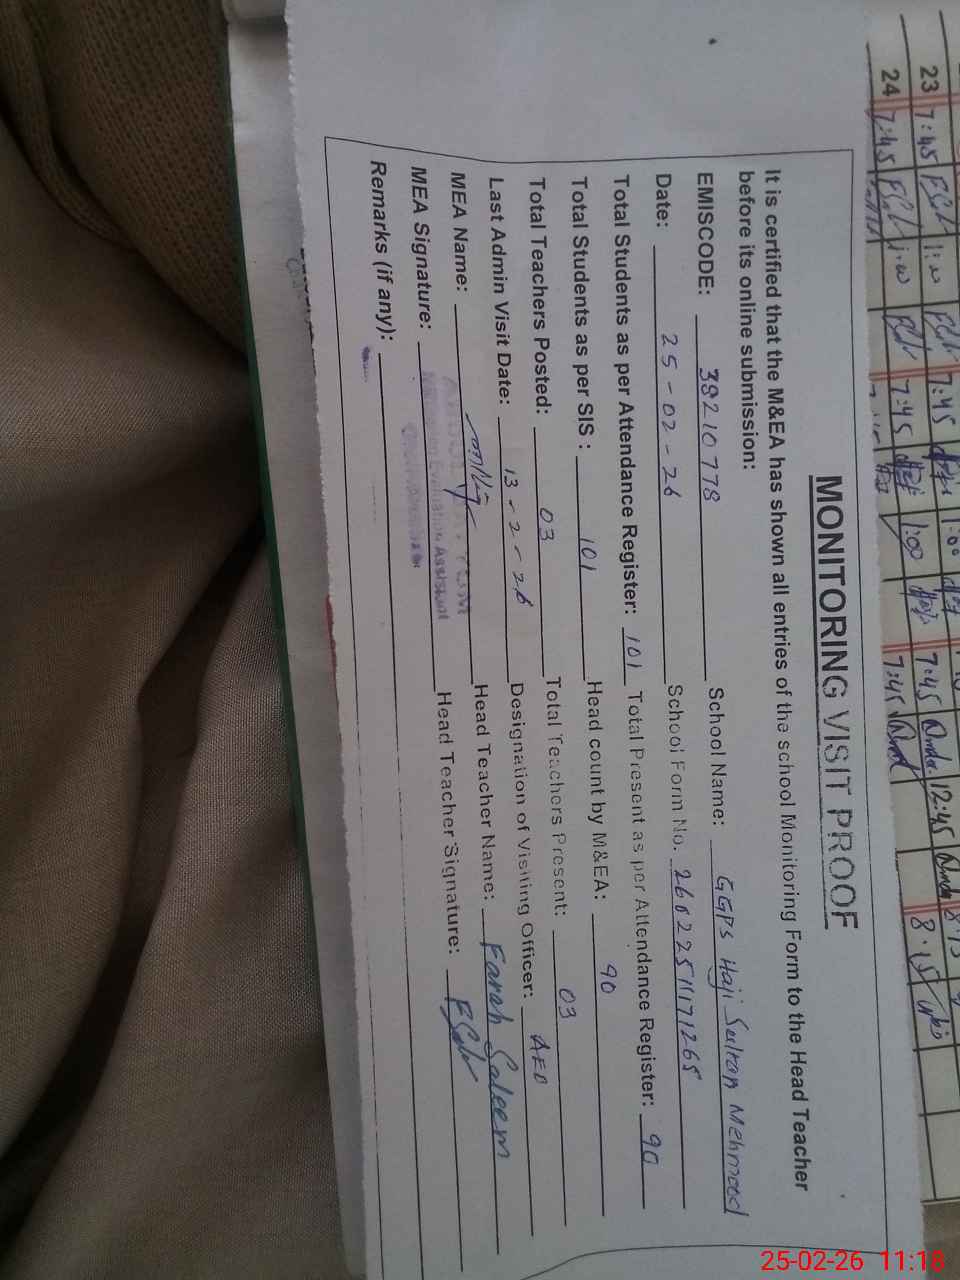 MONITORING VISIT PROOF
It is certified that the M&EA has shown all entries of the school Monitoring Form to the Head Teacher
before its online submission:
EMISCODE: 38210778 School Name: GGPS Haji Sultan Mehmood
Date: 25-02-26 School Form No. 26022511171265
Total Students as per Attendance Register: 101 Total Present as per Attendance Register: 90
Total Students as per SIS : 101 Head count by M&EA: 90
Total Teachers Posted: 03 Total Teachers Present: 03
Last Admin Visit Date: 13-2-26 Designation of Visiting Officer: AEO
MEA Name: Head Teacher Name: Farah Saleem
MEA Signature: Evaluation Assistant Head Teacher Signature:
Remarks (if any):
23 7:45 7:45 1:00 7:45 12:45
24 7:45 7:45 1:00 7:45 8:15
25-02-26 11:18